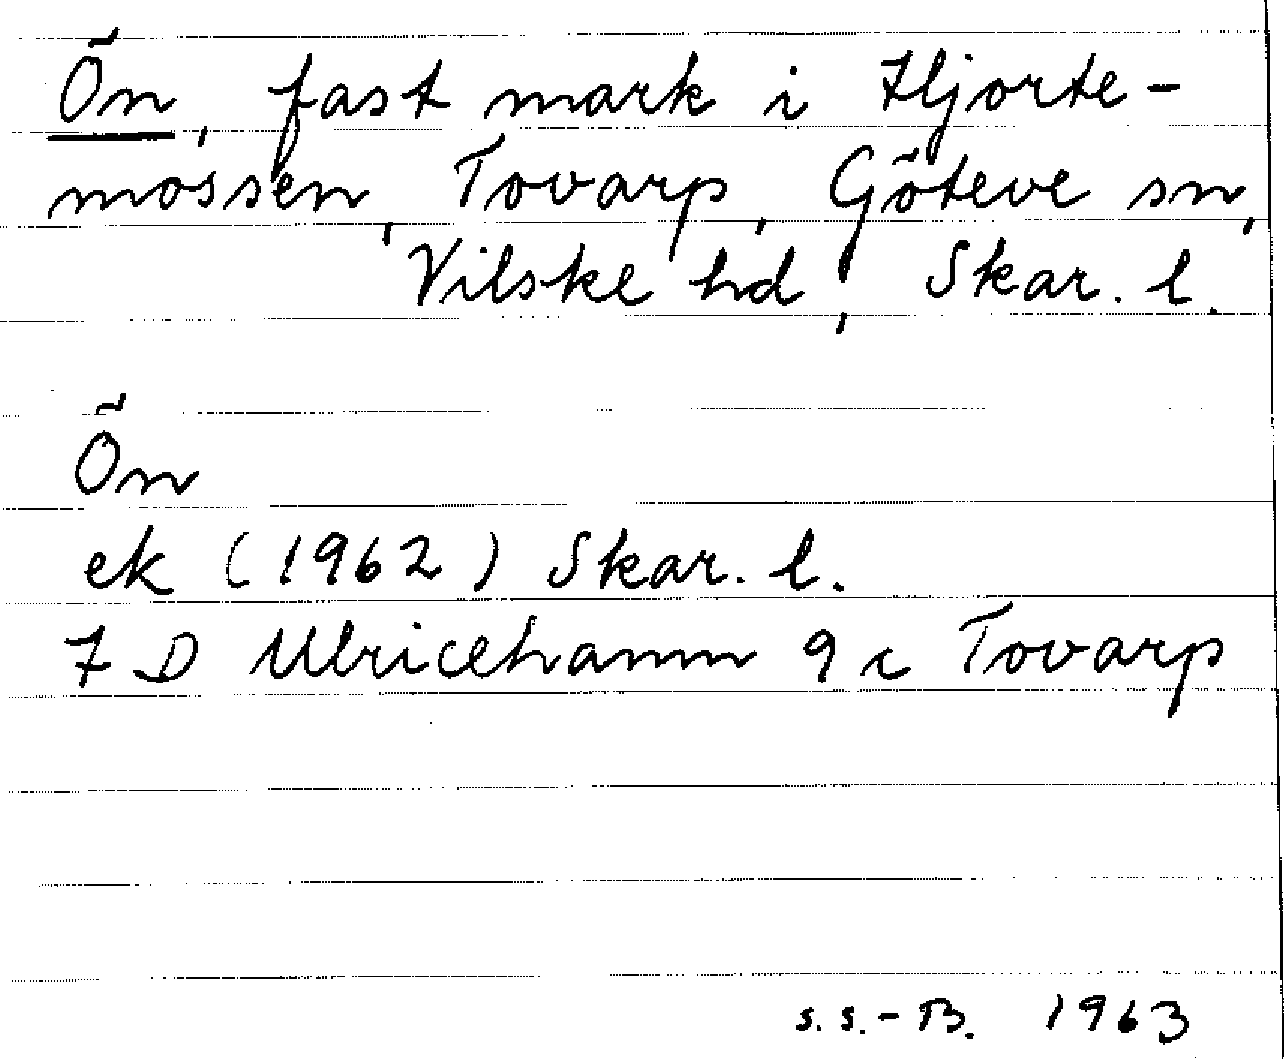 Ön, fast mark i Hjorte-
mossen, Tovarp, Göteve sn,
Vilske hd, Skar. l.
Ön
ek (1962) Skar. l.
7 D Ulricehamn 9 c Tovarp
S.S.-B. 1963